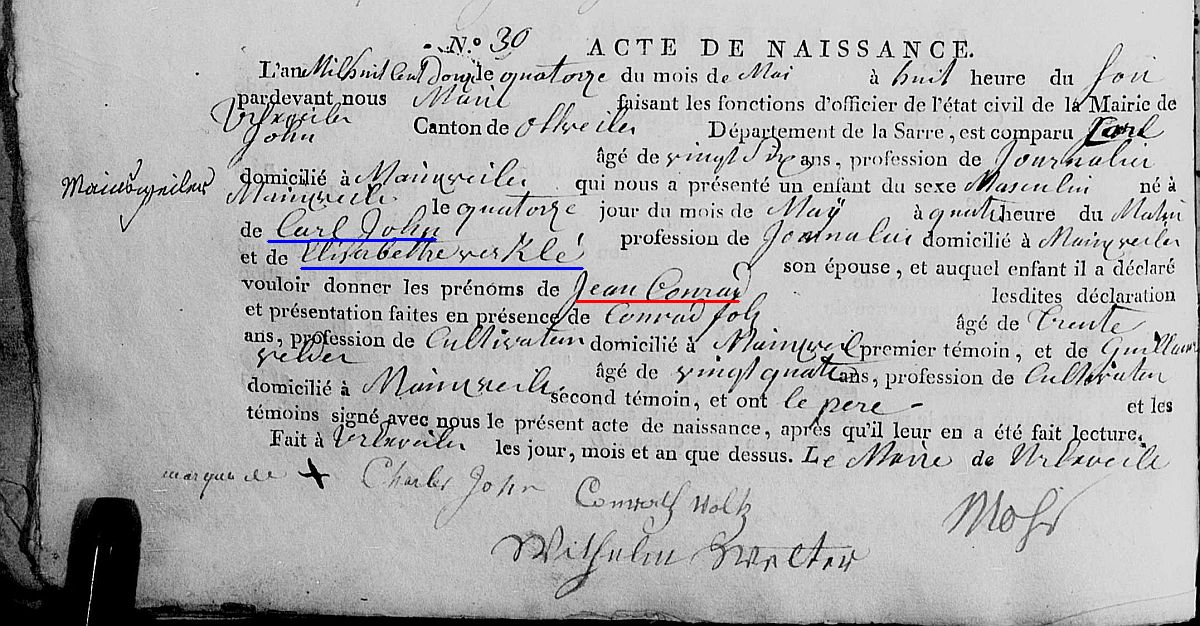 N.º 30 ACTE DE NAISSANCE.
L'an Mil huit Cent Douze le quatorze du mois de Mai à huit heure du Soir
pardevant nous Maire faisant les fonctions d'officier de l'état civil de la Mairie de
Urleveiler Canton de Ottveiler Département de la Sarre, est comparu Carl
John âgé de vingt Six ans, profession de Journalier
Mainsweiler
domicilié à Mainzveiler qui nous a présenté un enfant du sexe Masculin né à
Mainzveiler le quatorze jour du mois de Maÿ à quatre heure du Matin
de Carl John profession de Journalier domicilié à Mainzveiler
et de Elisabethe Klé son épouse, et auquel enfant il a déclaré
vouloir donner les prénoms de Jean Conrad lesdites déclaration
et présentation faites en présence de Conrad âgé de Trente
ans, profession de Cultivateur domicilié à Mainzveil premier témoin, et de Guillaume
velder âgé de vingt quatre ans, profession de Cultivateur
domicilié à Mainzveiler second témoin, et ont le pere et les
témoins signé avec nous le présent acte de naissance, après qu'il leur en a été fait lecture.
Fait à Urleveiler les jour, mois et an que dessus. Le Maire de Urleveile
marque de + Charles John Conrath Woltz Mohr
Wilhelm Welter